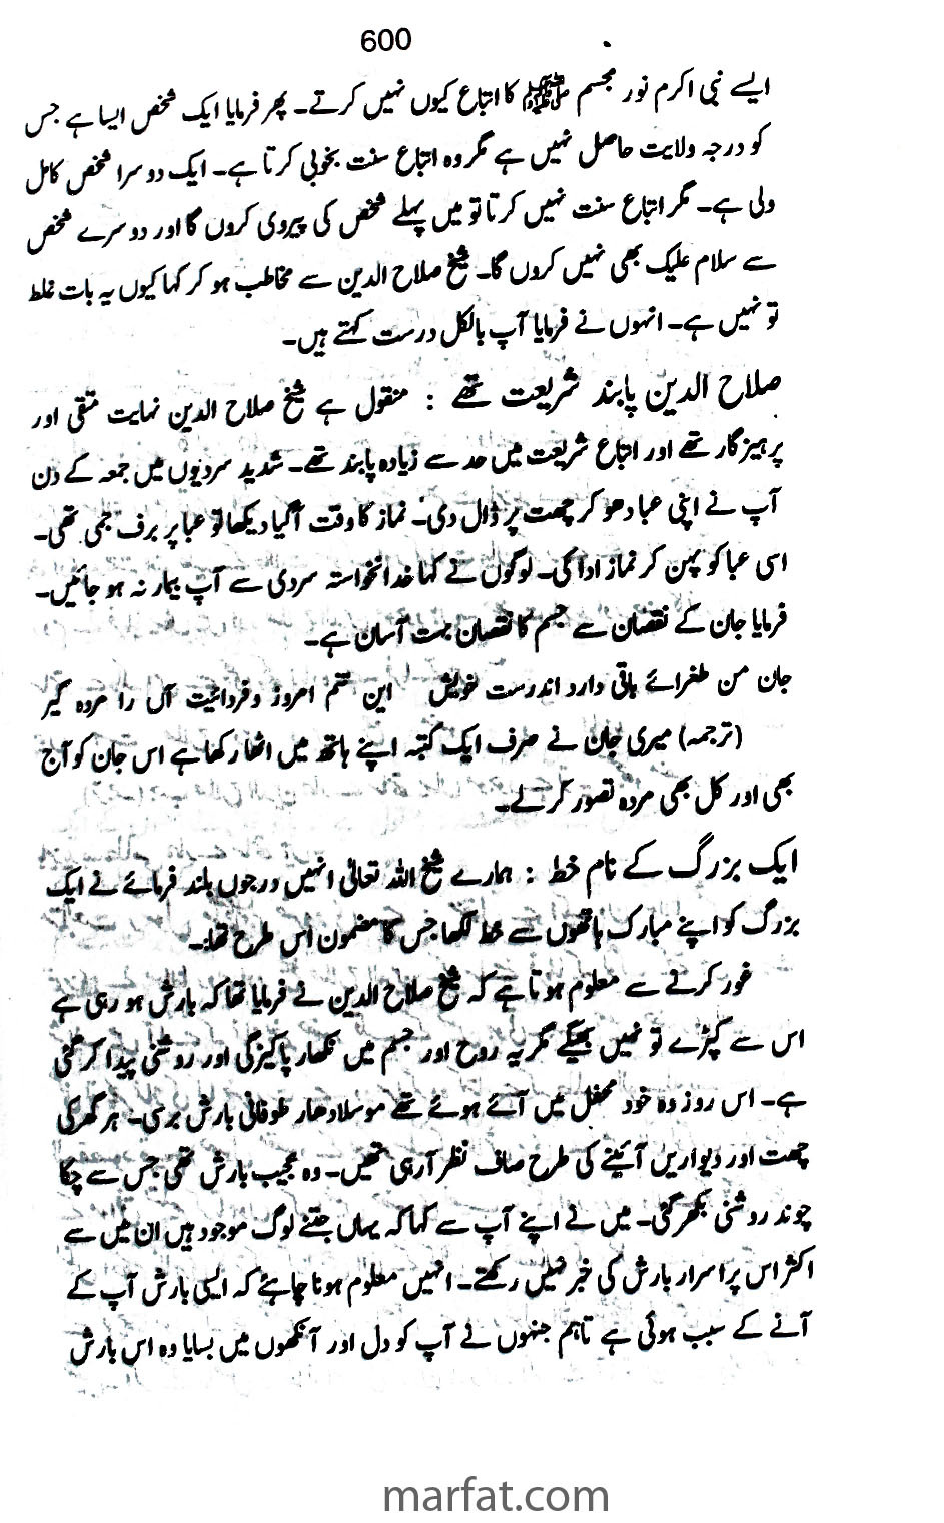 600
ایسے نبی اکرم نور مجسم ﷺ کا اتباع کیوں نہیں کرتے۔ پھر فرمایا ایک شخص ایسا ہے جس
کو درجہ ولایت حاصل نہیں ہے مگر وہ اتباع سنت بخوبی کرتا ہے۔ ایک دوسرا شخص کامل
ولی ہے۔ مگر اتباع سنت نہیں کرتا تو میں پہلے شخص کی پیروی کروں گا اور دوسرے شخص
سے سلام علیک بھی نہیں کروں گا۔ شیخ صلاح الدین سے مخاطب ہو کر کہا کیوں یہ بات غلط
تو نہیں ہے۔ انہوں نے فرمایا آپ بالکل درست کہتے ہیں۔
صلاح الدین پابند شریعت تھے : منقول ہے شیخ صلاح الدین نہایت متقی اور
پرہیزگار تھے اور اتباع شریعت میں حد سے زیادہ پابند تھے۔ شدید سردیوں میں جمعہ کے دن
آپ نے اپنی عبا دھو کر چھت پر ڈال دی۔ نماز کا وقت آگیا دیکھا تو عبا پر برف جمی تھی۔
اسی عبا کو پہن کر نماز ادا کی۔ لوگوں نے کہا خدانخواستہ سردی سے آپ بیمار نہ ہو جائیں۔
فرمایا جان کے نقصان سے جسم کا نقصان بہت آسان ہے۔
جان من طغرائے باقی دارد اندرست خویش این تنم امروز و فردائیت آں را مردہ گیر
(ترجمہ) میری جان نے صرف ایک کتبہ اپنے ہاتھ میں اٹھا رکھا ہے اس جان کو آج
بھی اور کل بھی مردہ تصور کر لے۔
ایک بزرگ کے نام خط : ہمارے شیخ اللہ تعالی انہیں درجوں بلند فرمائے نے ایک
بزرگ کو اپنے مبارک ہاتھوں سے خط لکھا جس کا مضمون اس طرح تھا:۔
غور کرنے سے معلوم ہوتا ہے کہ شیخ صلاح الدین نے فرمایا تھا کہ بارش ہو رہی ہے
اس سے کپڑے تو نہیں بھیگے مگر یہ روح اور جسم میں نکھار پاکیزگی اور روشنی پیدا کر گئی
ہے۔ اس روز وہ خود محفل میں آئے ہوئے تھے موسلا دھار طوفانی بارش برسی۔ ہر گھر کی
چھت اور دیواریں آئینے کی طرح صاف نظر آرہی تھیں۔ وہ عجیب بارش تھی جس سے چکا
چوند روشنی بکھر گئی۔ میں نے اپنے آپ سے کہا کہ یہاں جتنے لوگ موجود ہیں ان میں سے
اکثر اس پراسرار بارش کی خبر نہیں رکھتے۔ انہیں معلوم ہونا چاہئے کہ ایسی بارش آپ کے
آنے کے سبب ہوئی ہے تاہم جنہوں نے آپ کو دل اور آنکھوں میں بسایا وہ اس بارش
marfat.com